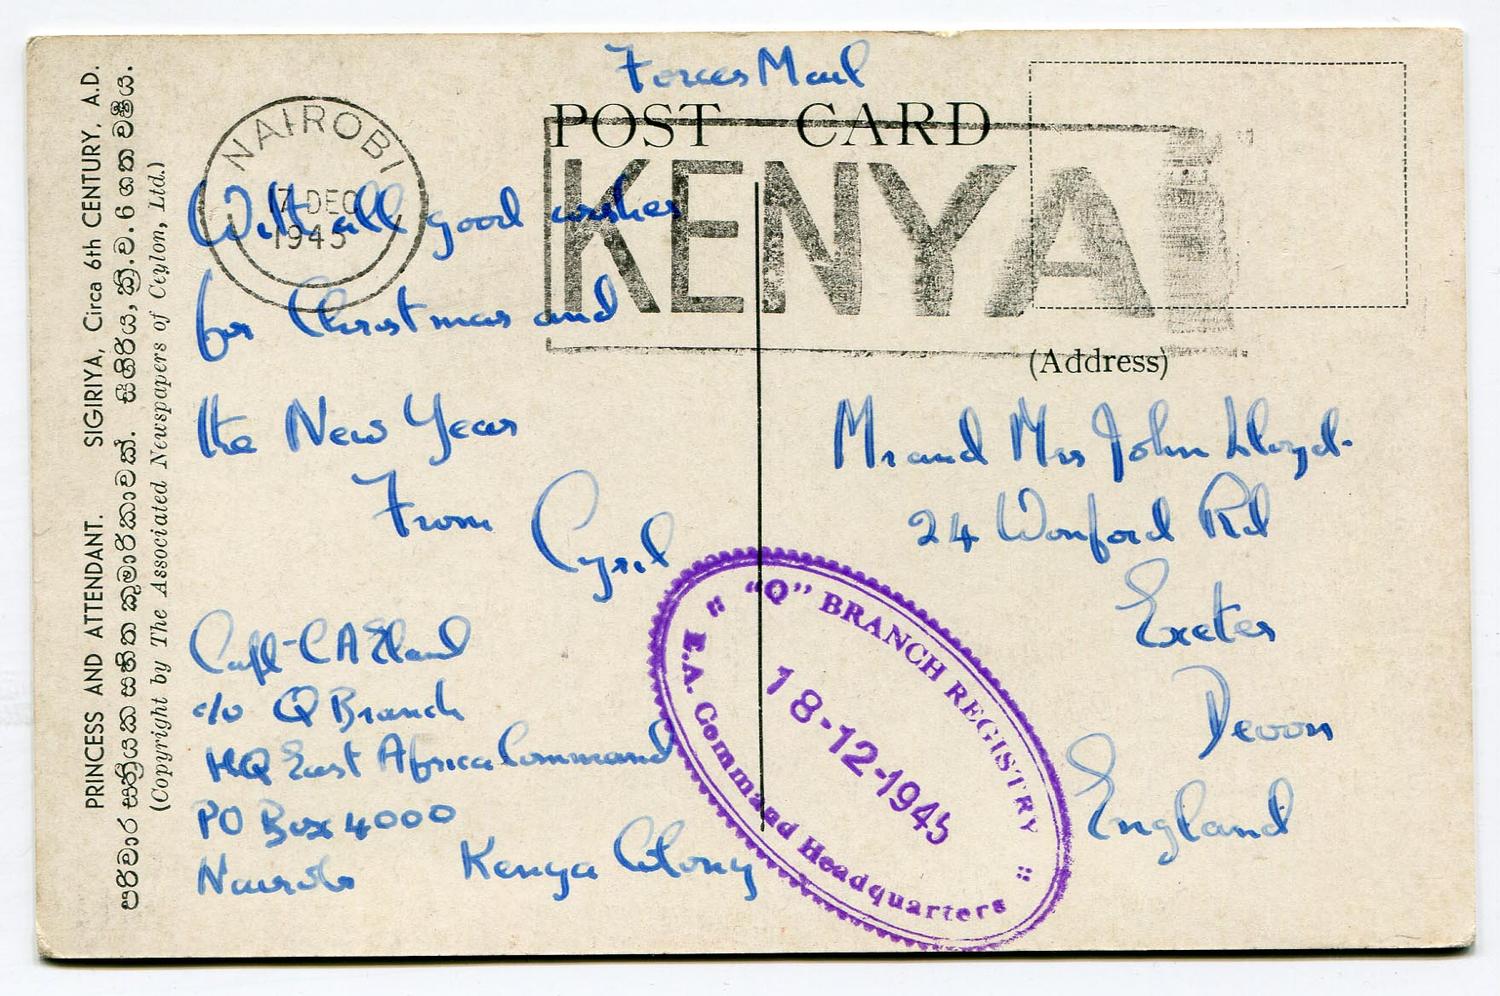 Forces Mail
POST CARD
NAIROBI
DEC
1945
KENYA
With all good wishes
for Christmas and
the New Year
From
Cyril
Capt C A Eland
c/o Q Branch
HQ East Africa Command
PO Box 4000
Nairobi Kenya Colony
(Address)
Mr and Mrs John Lloyd.
24 Wonford Rd
Exeter
Devon
England
"Q" BRANCH REGISTRY
18-12-1945
E.A. Command Headquarters
PRINCESS AND ATTENDANT. SIGIRIYA, Circa 6th CENTURY, A.D.
පරිවාර ස්ත්‍රියක සහිත කුමාරිකාවක්. සීගිරිය, ක්‍රි.ව. 6 ශත වර්ෂය.
(Copyright by The Associated Newspapers of Ceylon, Ltd.)